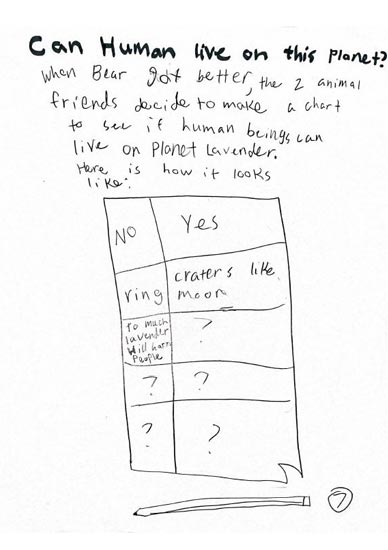 Can Human live on this Planet?
When Bear got better, the 2 animal
friends decide to make a chart
to see if human beings can
live on Planet Lavender.
Here is how it looks
like:
NO Yes
ring craters like
moon
To much
lavender
Will harm
People ?
? ?
? ?
7